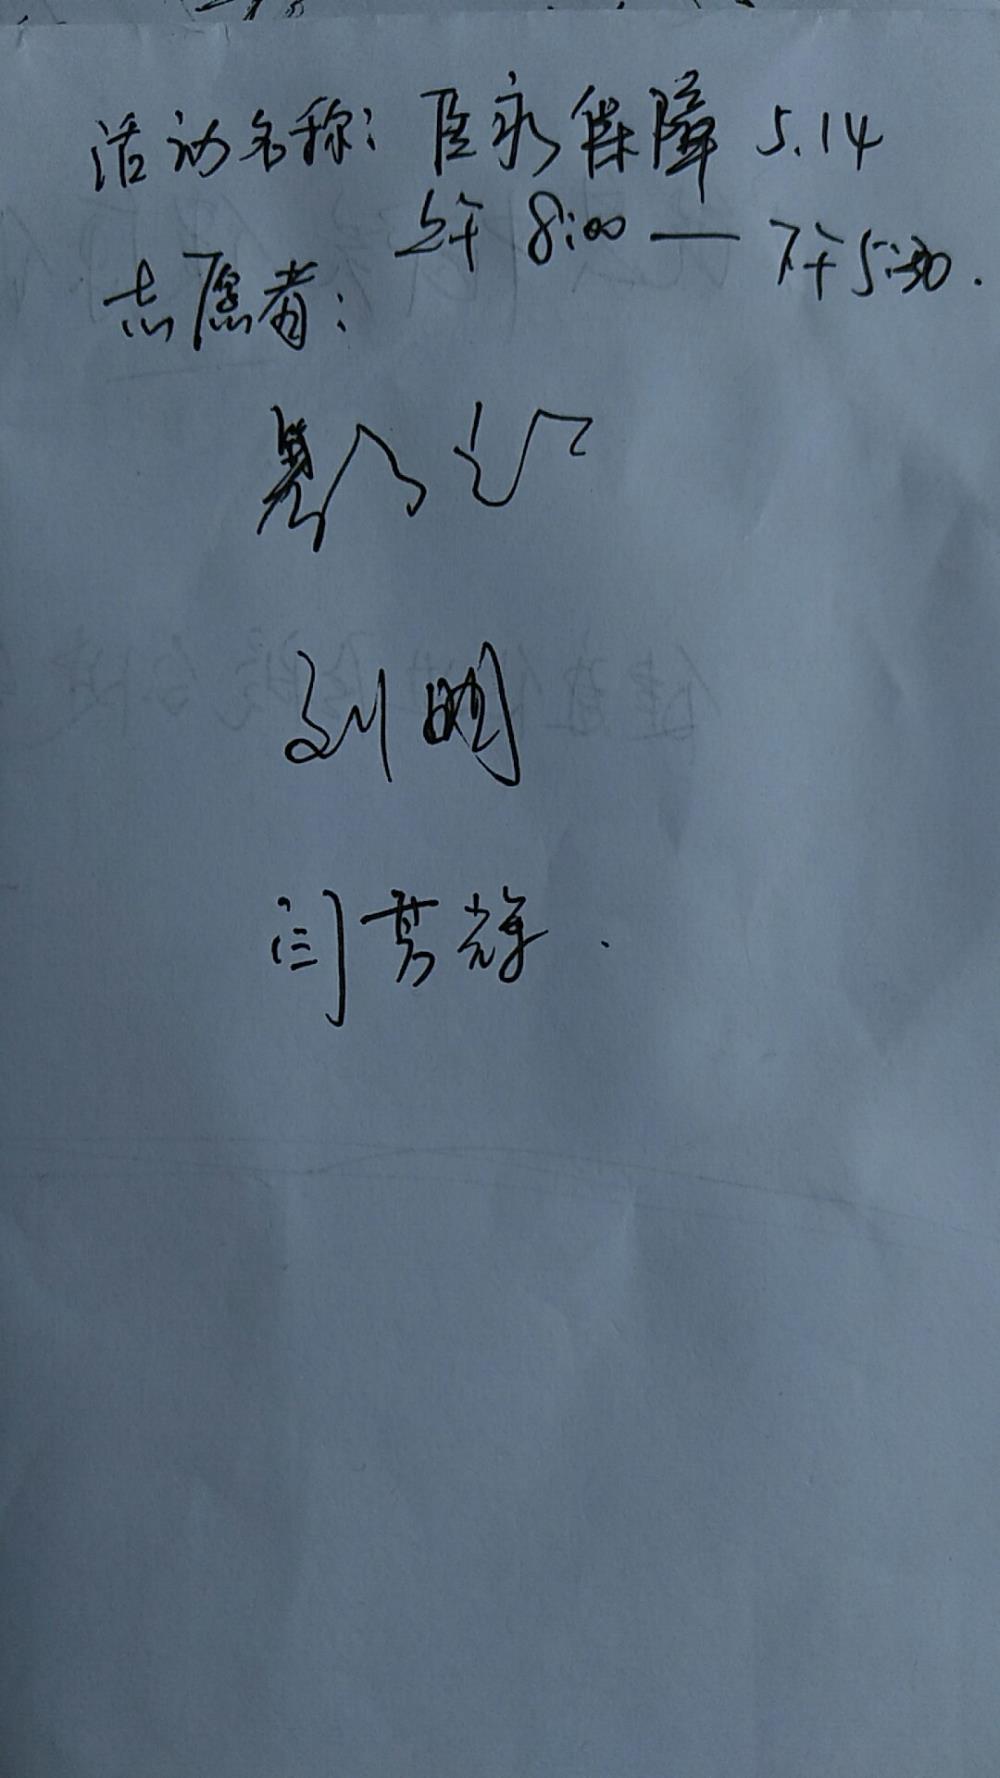 活动名称：医永保障 5.14
上午8:00 — 下午5:30.
志愿者：
刘明
闫芳辉.